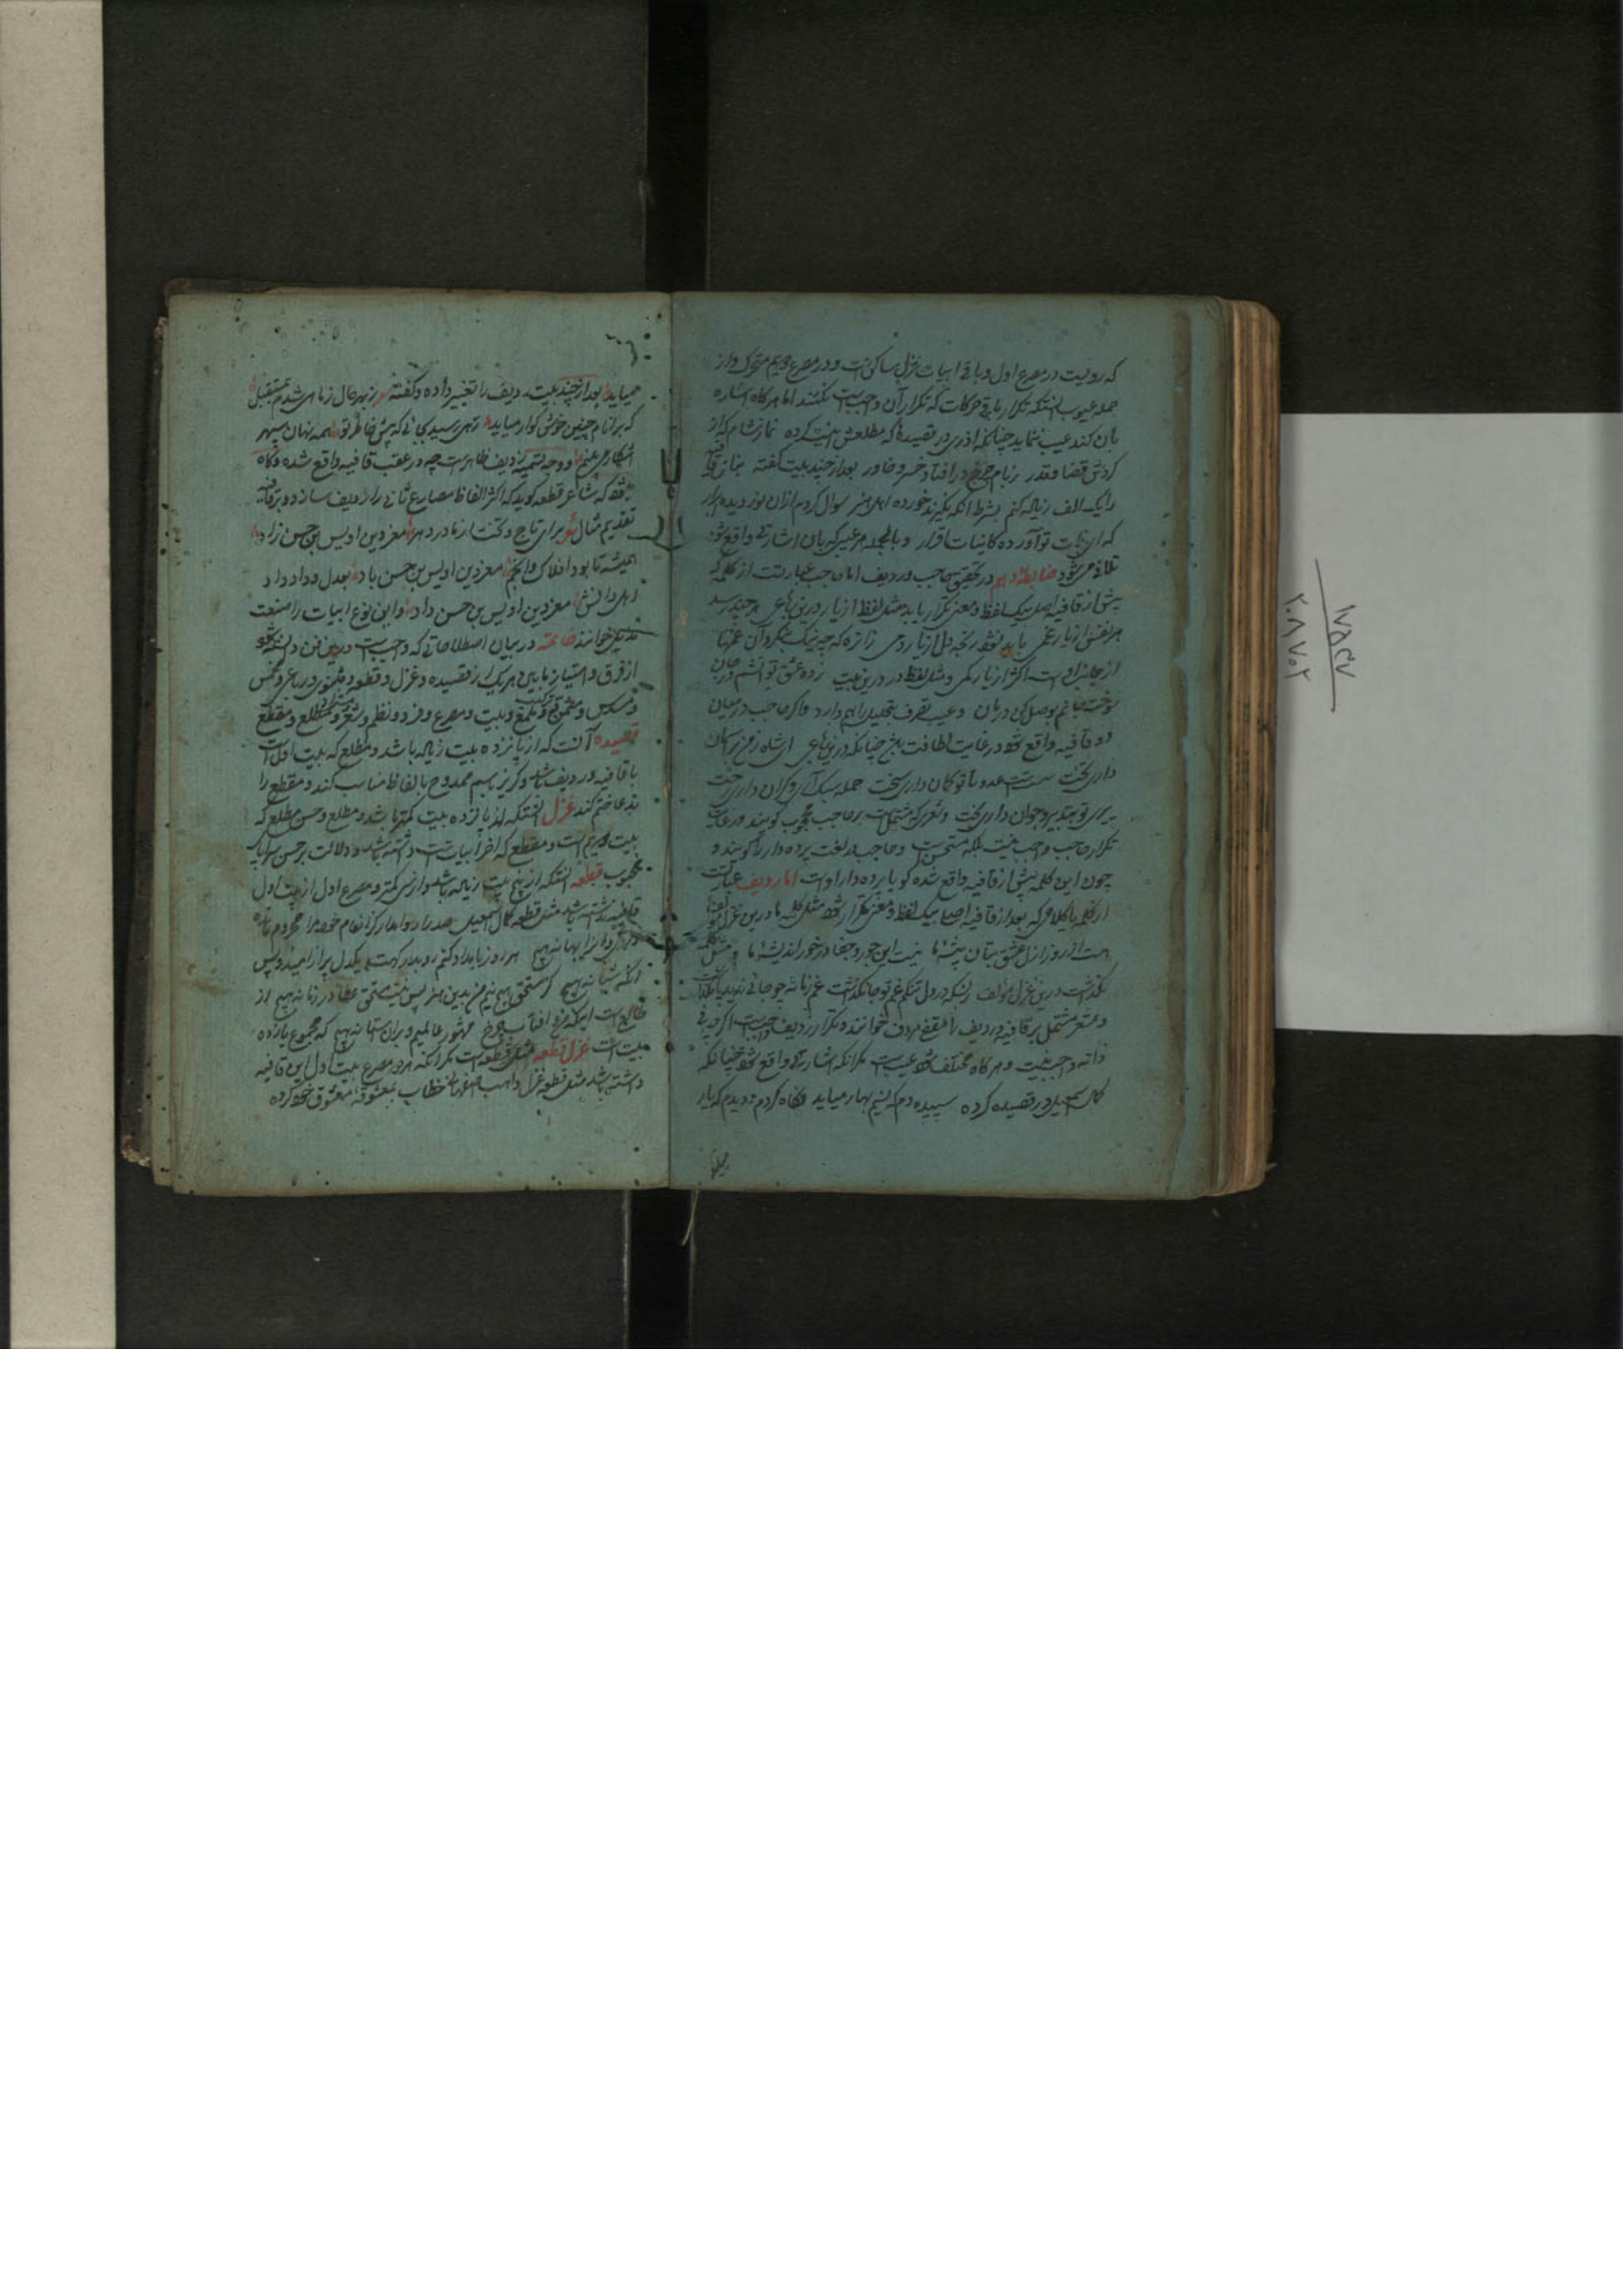 که رویست در مصرع اول و باقی ابیات غزل ساکن است و در مصرع دویم متحرک و از
جمله عیوب آنستکه تکرار باقی حرکات که تکرار آن واجبست نکنند اما هر گاه اشاره
بان کند عیب ننماید چنانکه اذری در قصیده که مطلعش اینست کرده نماز شام که از
گردش قضا و قدر ز بام چرخ در افتاد خسرو خاور بعد از چند بیت گفته
را یک الف زیاله کنم بشرط آنکه نگیرند خورده اهل هنر سوال کردم از ان نور دیده
که ای ثبات تو آورده کائنات قرار و بالجمله هر عیبی که بان اشارتی واقع شود
تلافی می شود ضابطه دهم در تحقیق حاجب و ردیف اما حاجب عبارتست از کلمه که
پیش از قافیه اصلی بیک لفظ و معنی تکرار یابد مثل لفظ از یار درین رباعی هر چند رسد
هر نفس از یار غمی باید نشود رنجه دل از یار دمی زانرو که چو نیک بنگرد آن غمها
از جانب اوست اگر از یار کمی و مثل لفظ در درین بیت زد عشق تو آتشم در جان
سوخت جانم وصل کن درمان و عیب تصرف تحلیل را هم دارد و اگر حاجب در میان
دو قافیه واقع شود در غایت لطافت بیش چنانکه درین رباعی ای شاه زمین بر آسمان
داری تخت سست است عدو تا تو کمان داری سخت حمله سبک آری و گران داری رخت
پیری تو بتدبیر و جوان داری بخت و شعری که مشتمل است بر حاجب محجوب گویند و رعایت
تکرار حاجب واجب نیست بلکه مستحسن است و حاجب در لغت پرده دار را گویند و
چون این کلمه پیش از قافیه واقع شده گویا پرده دار اوست اما ردیف عبارتست
از کلمه یا کلامی که بعد از قافیه اصلی بیک لفظ و معنی تکرار شود مثل کلمه ما درین غزل
هست از روز ازل عشق بتان پیشه ما نیست این جور و جفا در خور اندیشه ما و مثل کلمه
نگذشت درین غزل مؤلف بسکه در دل تنگم غم تو جا نگذشت غم زمانه چو جائی ندید پا نگذاشت
و شعر مشتمل بر قافیه و ردیف را مقفی مردف خوانند و تکرار ردیف واجبست اگر چه فی
ذاته واجب نیست و هر گاه مختلف شود عیب است مگر آنکه اشارتی واقع شود چنانکه
کمال اسمعیل در قصیده کرده سپیده دم که نسیم بهار میاید نگاه کردم و دیدم که یار
میاید
میاید بعد از چند بیت ردیف را تغییر داده و گفته ز بهر حال ز ماضی شدم بمستقبل
که بر تنام چنین خوش گوار میاید زهی رسیده بجائی که پیش خاطر تو همه نهان سپهر
آشکار می بینم و وجه تسمیه ردیف ظاهر است چه در عقب قافیه واقع شده و گاه
شود که شاعر قطعه گوید که اکثر الفاظ مصارع ثانی را ردیف سازد و بر قافیه
تقدیم مثال شعر برای تاج و تخت از مادر دهر معز دین اویس بن حسن زاد
همیشه تا بود افلاک و انجم معز دین اویس بن حسن باد بعدل و داد داد
اهل دانش معز دین اویس بن حسن داد و این نوع ابیات را صنعت
خوانند خاتمه در بیان اصطلاحاتی که واجبست درین فن دانسته شود
از فرق و امتیاز مابین هر یک از قصیده و غزل و قطعه و مثنوی و رباعی و مخمس
و مسدس و ملمع و بیت و مصرع و فرد و نظم و شعر و مطلع و مقطع
قصیده آنست که از پانزده بیت زیاله باشد و مطلع که بیت اول است
با قافیه و ردیف باشد و گریز باسم ممدوح بالفاظ مناسب کنند و مقطع را
بدعا ختم کنند غزل آنستکه از پانزده بیت کمتر باشد و مطلع و حسن مطلع که
بیت دویم است و مقطع که آخر ابیات است داشته باشد و دلالت بر حسن سراپای
محبوب قطعه آنستکه از پنج بیت زیاله باشد و از سی کمتر و مصرع اول از بیت اول
قافیه نداشته باشد مثل قطعه کمال اسمعیل صدرا روا مدار کز انعام خود مرا محروم
هر روز بامداد کنم رو بدرگهت یکدل پر از امید و پس
آنگه شبانه هیچ گر مستحق هیچ نیم من بدین هنر پس نیست مستحق عطا در زمانه هیچ از
طالع است اینکه من و آفتاب چرخ مشهور عالمیم و بران ستانه هیچ که مجموع یازده
بیت است غزل قطعه مثل قطعه است مگر آنکه هر دو مصرع بیت اول این قافیه
داشته باشد مثل قطعه غزل واهب اصفهانی خطاب بمعشوقه معشوق خود کرده
۱۷۵۴۷
۲۰۸۷۰۲